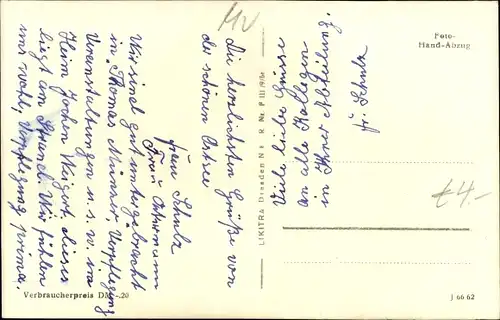 Die herzlichsten Grüße von
der schönen Ostsee
Frau Schulz
Frau
Wir sind gut untergebracht
in „Thomas Münzer", Verpflegung
Veranstaltungen u.s.w. im
Heim Jochen Weigert, dieses
liegt am Strand. Wir fühlen
uns wohl, Verpflegung prima.
Verbraucherpreis DM -.20
LIKITRA Dresden N R Nr. P III/9/86
Foto-
Hand-Abzug
Viele liebe Grüsse
an alle Kollegen
in Ihrer Abteilung.
fr. Schulz
€4-
J 66 62